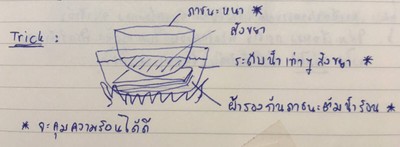 ภาชนะหนา *
สังขยา
Trick :
ระดับน้ำเท่าๆ สังขยา *
ผ้ารองก้นภาชนะต้มน้ำร้อน *
* จะคุมความร้อนได้ดี